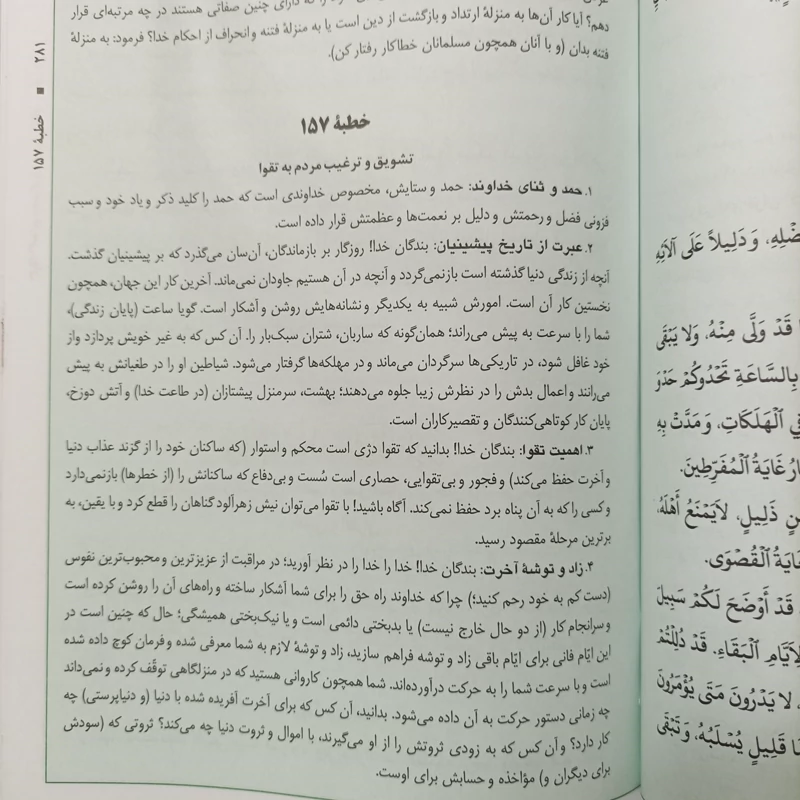 را که دارای چنین صفاتی هستند در چه مرتبه‌ای قرار
دهم؟ آیا کار آن‌ها به منزلهٔ ارتداد و بازگشت از دین است یا به منزلهٔ فتنه و انحراف از احکام خدا؟ فرمود: به منزلهٔ
فتنه بدان (و با آنان همچون مسلمانان خطاکار رفتار کن).
خطبهٔ ۱۵۷
تشویق و ترغیب مردم به تقوا
۱. حمد و ثنای خداوند: حمد و ستایش، مخصوص خداوندی است که حمد را کلید ذکر و یاد خود و سبب
فزونی فضل و رحمتش و دلیل بر نعمت‌ها و عظمتش قرار داده است.
۲. عبرت از تاریخ پیشینیان: بندگان خدا! روزگار بر بازماندگان، آن‌سان می‌گذرد که بر پیشینیان گذشت.
آنچه از زندگی دنیا گذشته است بازنمی‌گردد و آنچه در آن هستیم جاودان نمی‌ماند. آخرین کار این جهان، همچون
نخستین کار آن است. امورش شبیه به یکدیگر و نشانه‌هایش روشن و آشکار است. گویا ساعت (پایان زندگی)،
شما را با سرعت به پیش می‌راند؛ همان‌گونه که ساربان، شتران سبک‌بار را. آن کس که به غیر خویش پردازد و از
خود غافل شود، در تاریکی‌ها سرگردان می‌ماند و در مهلکه‌ها گرفتار می‌شود. شیاطین او را در طغیانش به پیش
می‌رانند و اعمال بدش را در نظرش زیبا جلوه می‌دهند؛ بهشت، سرمنزل پیشتازان (در طاعت خدا) و آتش دوزخ،
پایان کار کوتاهی‌کنندگان و تقصیرکاران است.
۳. اهمیت تقوا: بندگان خدا! بدانید که تقوا دژی است محکم و استوار (که ساکنان خود را از گزند عذاب دنیا
و آخرت حفظ می‌کند) و فجور و بی‌تقوایی، حصاری است سُست و بی‌دفاع که ساکنانش را (از خطرها) بازنمی‌دارد
و کسی را که به آن پناه برد حفظ نمی‌کند. آگاه باشید! با تقوا می‌توان نیش زهرآلود گناهان را قطع کرد و با یقین، به
برترین مرحلهٔ مقصود رسید.
۴. زاد و توشهٔ آخرت: بندگان خدا! خدا را خدا را در نظر آورید؛ در مراقبت از عزیزترین و محبوب‌ترین نفوس
(دست کم به خود رحم کنید؛) چرا که خداوند راه حق را برای شما آشکار ساخته و راه‌های آن را روشن کرده است
و سرانجام کار (از دو حال خارج نیست) یا بدبختی دائمی است و یا نیک‌بختی همیشگی؛ حال که چنین است در
این ایّام فانی برای ایّام باقی زاد و توشه فراهم سازید، زاد و توشهٔ لازم به شما معرفی شده و فرمان کوچ داده شده
است و با سرعت شما را به حرکت درآورده‌اند. شما همچون کاروانی هستید که در منزلگاهی توقّف کرده و نمی‌داند
چه زمانی دستور حرکت به آن داده می‌شود. بدانید، آن کس که برای آخرت آفریده شده با دنیا (و دنیاپرستی) چه
کار دارد؟ و آن کس که به زودی ثروتش را از او می‌گیرند، با اموال و ثروت دنیا چه می‌کند؟ ثروتی که (سودش
برای دیگران و) مؤاخذه و حسابش برای اوست.
خطبهٔ ۱۵۷ ■ ۲۸۱
وَ دَلِيلاً عَلَى آلَائِهِ
قَدْ وَلَّى مِنْهُ، وَلَا يَبْقَى
بِالسَّاعَةِ تَحْدُوكُمْ حَدْوَ
فِي الْهَلَكَاتِ، وَ مَدَّتْ بِهِ
غَايَةُ الْمُفَرِّطِينَ.
ذَلِيلٍ، لَا يَمْنَعُ أَهْلَهُ،
الْقُصْوَى.
قَدْ أَوْضَحَ لَكُمْ سَبِيلَ
لِأَيَّامِ الْبَقَاءِ. قَدْ دُلِلْتُمْ
لَا يَدْرُونَ مَتَى يُؤْمَرُونَ
قَلِيلٍ يُسْلَبُهُ، وَ تَبْقَى